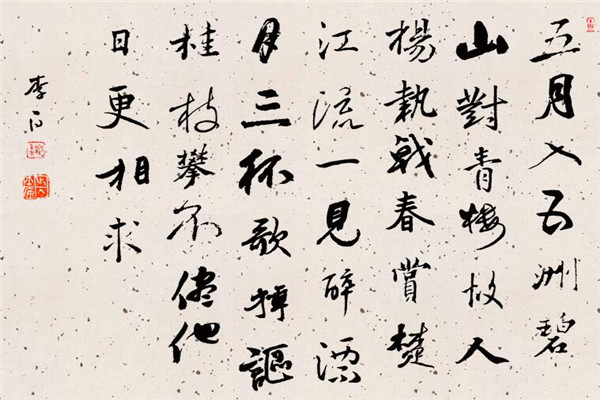 五月入五洲碧
山對青樓故人
楊執戟春賞楚
江流一見醉漂
月三杯歌棹謳
桂枝攀不儘他
日更相求
李白